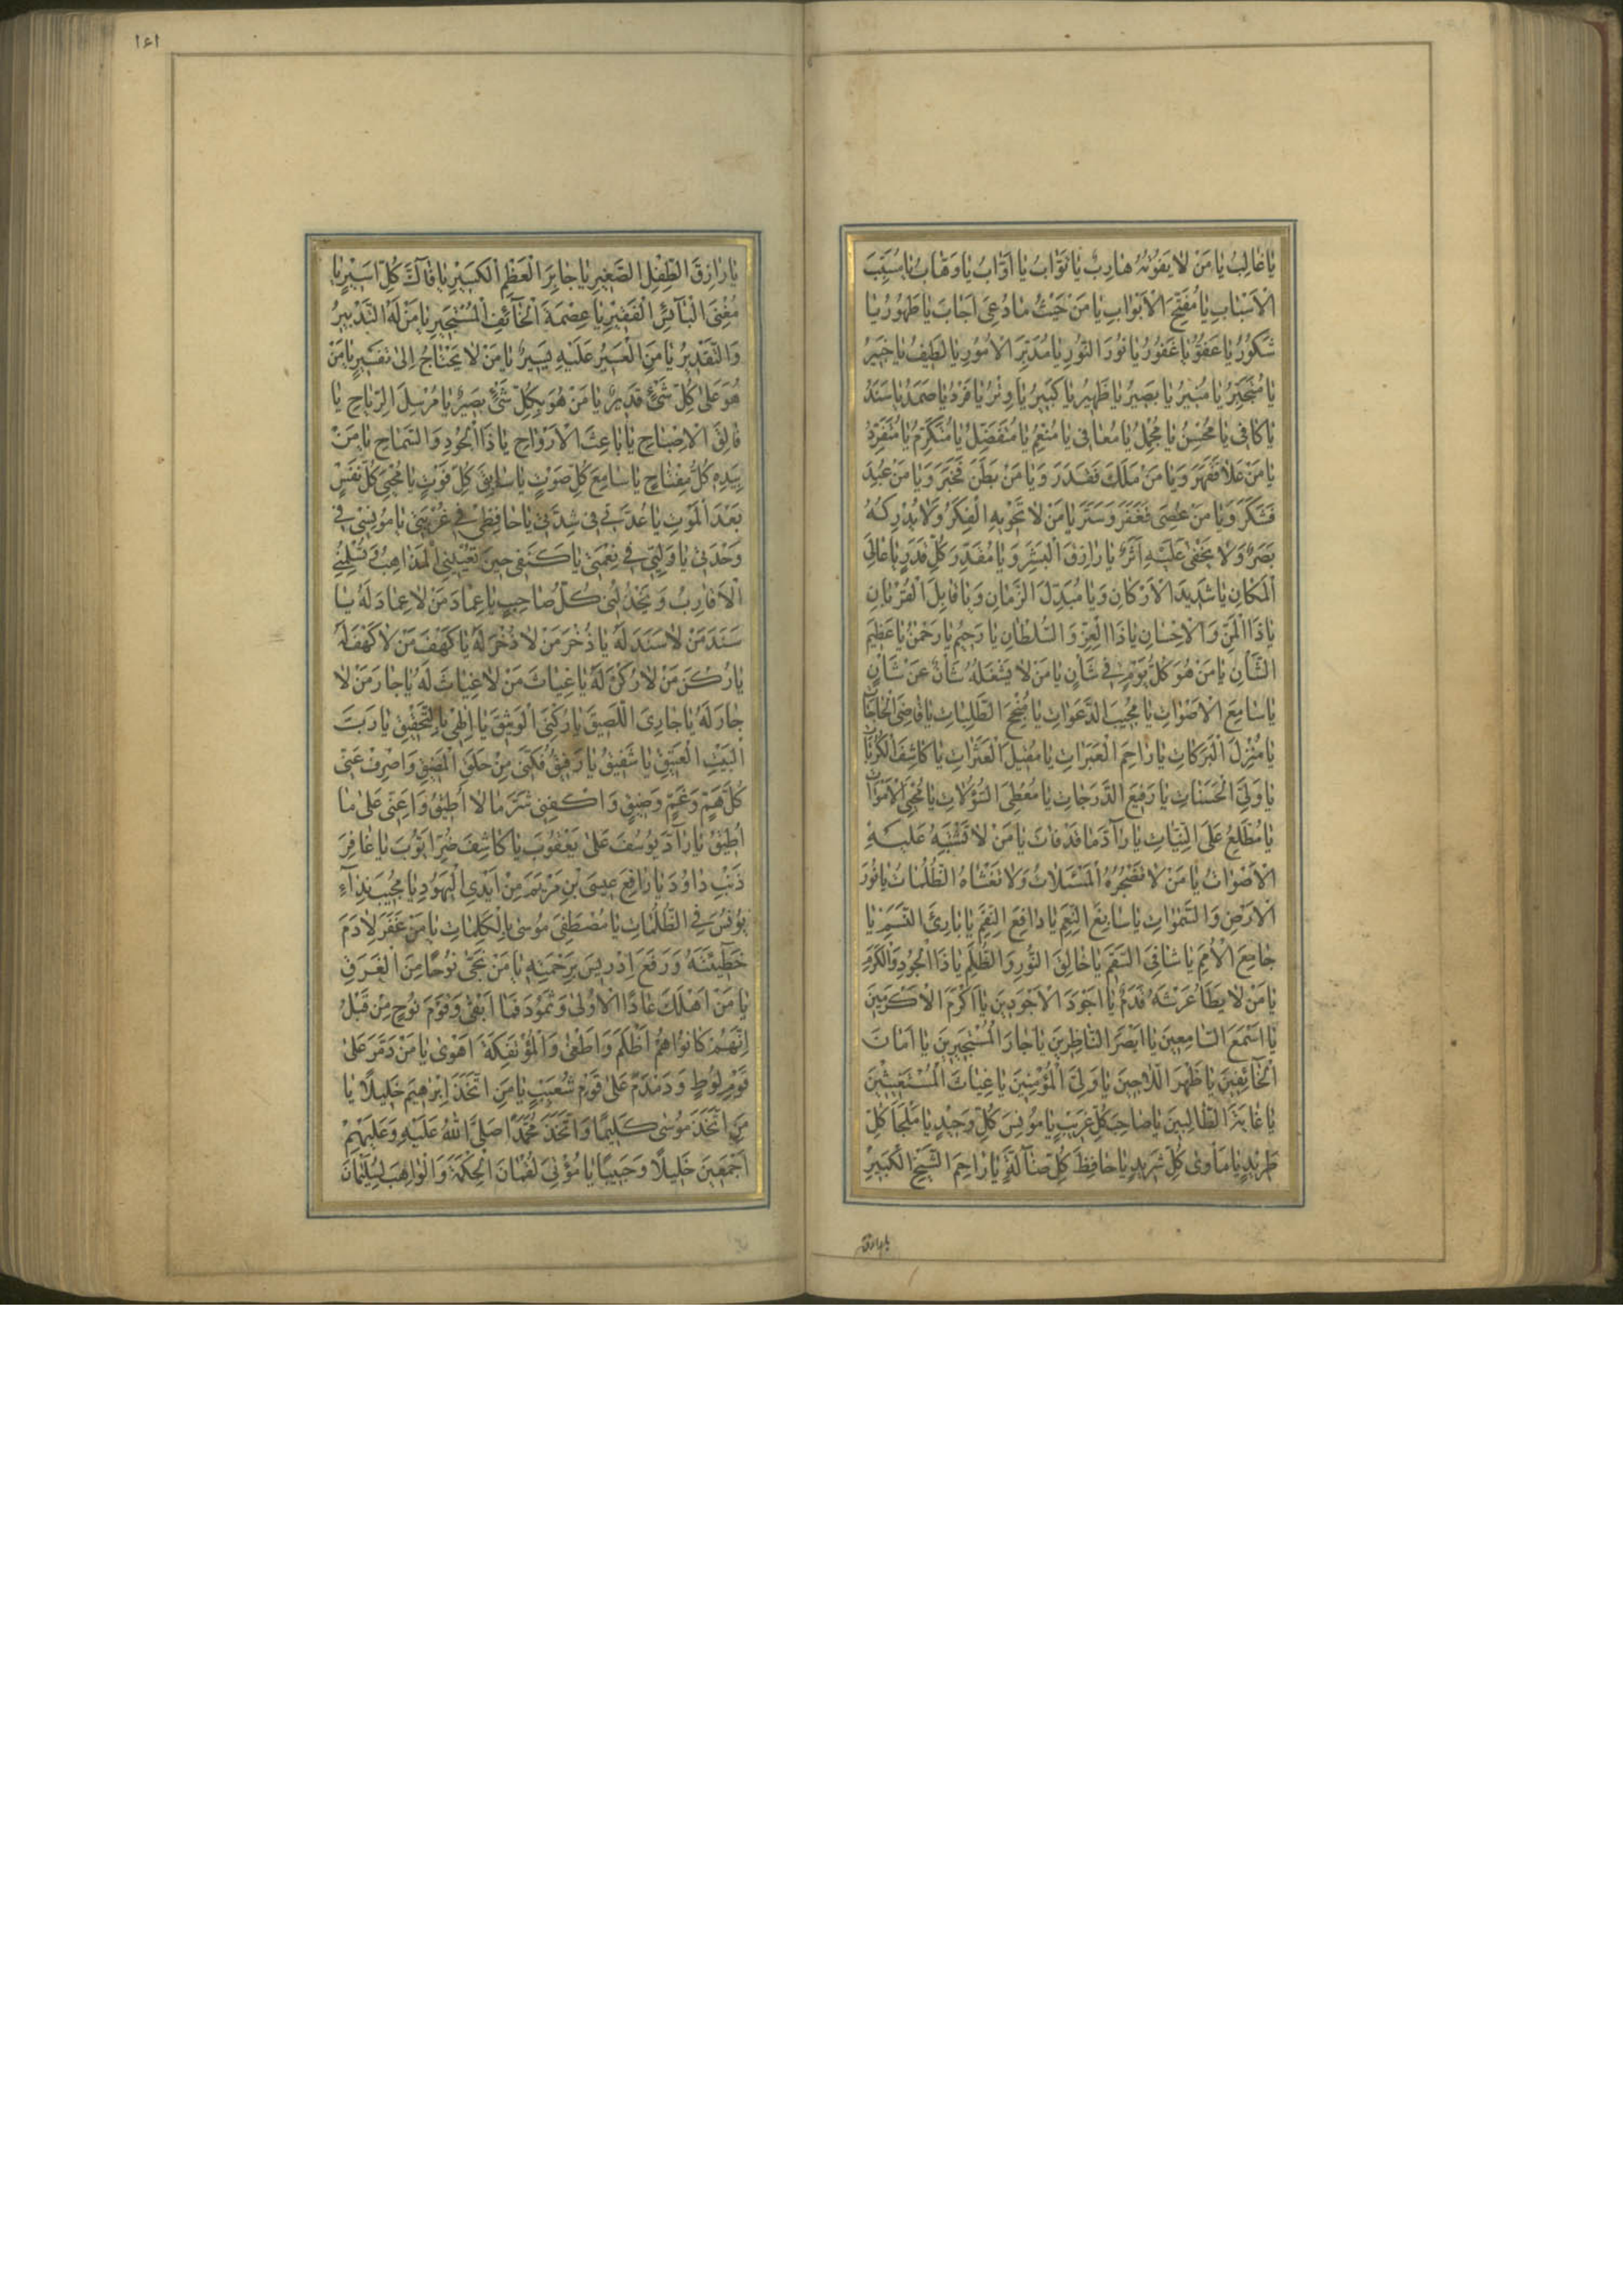 يَا غَالِبُ يَا مَنْ لَا يَفُوتُهُ هَارِبٌ يَا تَوَّابُ يَا أَوَّابُ يَا وَهَّابُ يَا مُسَبِّبَ
الْأَسْبَابِ يَا مُفَتِّحَ الْأَبْوَابِ يَا مَنْ حَيْثُ مَا دُعِيَ أَجَابَ يَا طَهُورُ يَا
شَكُورُ يَا عَفُوُّ يَا غَفُورُ يَا نُورَ النُّورِ يَا مُدَبِّرَ الْأُمُورِ يَا لَطِيفُ يَا خَبِيرُ
يَا مُتَجَبِّرُ يَا مُنِيرُ يَا بَصِيرُ يَا ظَهِيرُ يَا كَبِيرُ يَا وِتْرُ يَا فَرْدُ يَا صَمَدُ يَا سَنَدُ
يَا كَافِي يَا مُحْسِنُ يَا مُجْمِلُ يَا مُعَافِي يَا مُنْعِمُ يَا مُتَفَضِّلُ يَا مُتَكَرِّمُ يَا مُتَفَرِّدُ
يَا مَنْ عَلَا فَقَهَرَ وَيَا مَنْ مَلَكَ فَقَدَرَ وَيَا مَنْ بَطَنَ فَخَبَرَ وَيَا مَنْ عُبِدَ
فَشَكَرَ وَيَا مَنْ عُصِيَ فَغَفَرَ وَسَتَرَ يَا مَنْ لَا تَحْوِيهِ الْفِكَرُ وَلَا يُدْرِكُهُ
بَصَرٌ وَلَا يَخْفَى عَلَيْهِ أَثَرٌ يَا رَازِقَ الْبَشَرِ وَيَا مُقَدِّرَ كُلِّ قَدَرٍ يَا عَالِيَ
الْمَكَانِ يَا شَدِيدَ الْأَرْكَانِ وَيَا مُبَدِّلَ الزَّمَانِ وَيَا قَابِلَ الْقُرْبَانِ
يَا ذَا الْمَنِّ وَالْإِحْسَانِ يَا ذَا الْعِزِّ وَالسُّلْطَانِ يَا رَحِيمُ يَا رَحْمٰنُ يَا عَظِيمَ
الشَّأْنِ يَا مَنْ هُوَ كُلَّ يَوْمٍ فِي شَأْنٍ يَا مَنْ لَا يَشْغَلُهُ شَأْنٌ عَنْ شَأْنٍ
يَا سَامِعَ الْأَصْوَاتِ يَا مُجِيبَ الدَّعَوَاتِ يَا مُنْجِحَ الطَّلِبَاتِ يَا قَاضِيَ الْحَاجَاتِ
يَا مُنْزِلَ الْبَرَكَاتِ يَا رَاحِمَ الْعَبَرَاتِ يَا مُقِيلَ الْعَثَرَاتِ يَا كَاشِفَ الْكُرُبَاتِ
يَا وَلِيَّ الْحَسَنَاتِ يَا رَفِيعَ الدَّرَجَاتِ يَا مُعْطِيَ السُّؤُلَاتِ يَا مُحْيِيَ الْأَمْوَاتِ
يَا مُطَّلِعُ عَلَى النِّيَّاتِ يَا رَآدَّ مَا قَدْ فَاتَ يَا مَنْ لَا تَشْتَبِهُ عَلَيْهِ
الْأَصْوَاتُ يَا مَنْ لَا تُضْجِرُهُ الْمَسْئَلَاتُ وَلَا تَغْشَاهُ الظُّلُمَاتُ يَا نُورَ
الْأَرْضِ وَالسَّمٰوَاتِ يَا سَابِغَ النِّعَمِ يَا دَافِعَ النِّقَمِ يَا بَارِئَ النَّسَمِ يَا
جَامِعَ الْأُمَمِ يَا شَافِيَ السَّقَمِ يَا خَالِقَ النُّورِ وَالظُّلَمِ يَا ذَا الْجُودِ وَالْكَرَمِ
يَا مَنْ لَا يَطَأُ عَرْشَهُ قَدَمٌ يَا أَجْوَدَ الْأَجْوَدِينَ يَا أَكْرَمَ الْأَكْرَمِينَ
يَا أَسْمَعَ السَّامِعِينَ يَا أَبْصَرَ النَّاظِرِينَ يَا جَارَ الْمُسْتَجِيرِينَ يَا أَمَانَ
الْخَآئِفِينَ يَا ظَهْرَ اللَّاجِينَ يَا وَلِيَّ الْمُؤْمِنِينَ يَا غِيَاثَ الْمُسْتَغِيثِينَ
يَا غَايَةَ الطَّالِبِينَ يَا صَاحِبَ كُلِّ غَرِيبٍ يَا مُونِسَ كُلِّ وَحِيدٍ يَا مَلْجَأَ كُلِّ
طَرِيدٍ يَا مَأْوَى كُلِّ شَرِيدٍ يَا حَافِظَ كُلِّ ضَآلَّةٍ يَا رَاحِمَ الشَّيْخِ الْكَبِيرِ
يا رازق
١٤١
يَا رَازِقَ الطِّفْلِ الصَّغِيرِ يَا جَابِرَ الْعَظْمِ الْكَسِيرِ يَا فَآكَّ كُلِّ أَسِيرٍ يَا
مُغْنِيَ الْبَآئِسِ الْفَقِيرِ يَا عِصْمَةَ الْخَآئِفِ الْمُسْتَجِيرِ يَا مَنْ لَهُ التَّدْبِيرُ
وَالتَّقْدِيرُ يَا مَنِ الْعَسِيرُ عَلَيْهِ يَسِيرٌ يَا مَنْ لَا يَحْتَاجُ إِلَى تَفْسِيرٍ يَا مَنْ
هُوَ عَلَى كُلِّ شَيْءٍ قَدِيرٌ يَا مَنْ هُوَ بِكُلِّ شَيْءٍ بَصِيرٌ يَا مُرْسِلَ الرِّيَاحِ يَا
فَالِقَ الْإِصْبَاحِ يَا بَاعِثَ الْأَرْوَاحِ يَا ذَا الْجُودِ وَالسَّمَاحِ يَا مَنْ
بِيَدِهِ كُلُّ مِفْتَاحٍ يَا سَامِعَ كُلِّ صَوْتٍ يَا سَابِقَ كُلِّ فَوْتٍ يَا مُحْيِيَ كُلِّ نَفْسٍ
بَعْدَ الْمَوْتِ يَا عُدَّتِي فِي شِدَّتِي يَا حَافِظِي فِي غُرْبَتِي يَا مُونِسِي فِي
وَحْدَتِي يَا وَلِيِّي فِي نِعْمَتِي يَا كَنَفِي حِينَ تُعْيِينِي الْمَذَاهِبُ وَتُسْلِمُنِي
الْأَقَارِبُ وَيَخْذُلُنِي كُلُّ صَاحِبٍ يَا عِمَادَ مَنْ لَا عِمَادَ لَهُ يَا
سَنَدَ مَنْ لَا سَنَدَ لَهُ يَا ذُخْرَ مَنْ لَا ذُخْرَ لَهُ يَا كَهْفَ مَنْ لَا كَهْفَ لَهُ
يَا رُكْنَ مَنْ لَا رُكْنَ لَهُ يَا غِيَاثَ مَنْ لَا غِيَاثَ لَهُ يَا جَارَ مَنْ لَا
جَارَ لَهُ يَا جَارِيَ اللَّصِيقَ يَا رُكْنِيَ الْوَثِيقَ يَا إِلٰهِي بِالتَّحْقِيقِ يَا رَبَّ
الْبَيْتِ الْعَتِيقِ يَا شَفِيقُ يَا رَفِيقُ فُكَّنِي مِنْ حَلَقِ الْمَضِيقِ وَاصْرِفْ عَنِّي
كُلَّ هَمٍّ وَغَمٍّ وَضِيقٍ وَاكْفِنِي شَرَّ مَا لَا أُطِيقُ وَأَعِنِّي عَلَى مَا
أُطِيقُ يَا رَآدَّ يُوسُفَ عَلَى يَعْقُوبَ يَا كَاشِفَ ضُرِّ أَيُّوبَ يَا غَافِرَ
ذَنْبِ دَاوُدَ يَا رَافِعَ عِيسَى بْنِ مَرْيَمَ مِنْ أَيْدِي الْيَهُودِ يَا مُجِيبَ نِدَآءِ
يُونُسَ فِي الظُّلُمَاتِ يَا مُصْطَفِيَ مُوسَى بِالْكَلِمَاتِ يَا مَنْ غَفَرَ لِآدَمَ
خَطِيئَتَهُ وَرَفَعَ إِدْرِيسَ بِرَحْمَتِهِ يَا مَنْ نَجَّى نُوحًا مِنَ الْغَرَقِ
يَا مَنْ أَهْلَكَ عَادًا الْأُولَى وَثَمُودَ فَمَا أَبْقَى وَقَوْمَ نُوحٍ مِنْ قَبْلُ
إِنَّهُمْ كَانُوا هُمْ أَظْلَمَ وَأَطْغَى وَالْمُؤْتَفِكَةَ أَهْوَى يَا مَنْ دَمَّرَ عَلَى
قَوْمِ لُوطٍ وَدَمْدَمَ عَلَى قَوْمِ شُعَيْبٍ يَا مَنِ اتَّخَذَ إِبْرٰهِيمَ خَلِيلًا يَا
مَنِ اتَّخَذَ مُوسَى كَلِيمًا وَاتَّخَذَ مُحَمَّدًا صَلَّى اللهُ عَلَيْهِ وَعَلَيْهِمْ
أَجْمَعِينَ خَلِيلًا وَحَبِيبًا يَا مُؤْتِيَ لُقْمَانَ الْحِكْمَةَ وَالْوَاهِبَ لِسُلَيْمَانَ